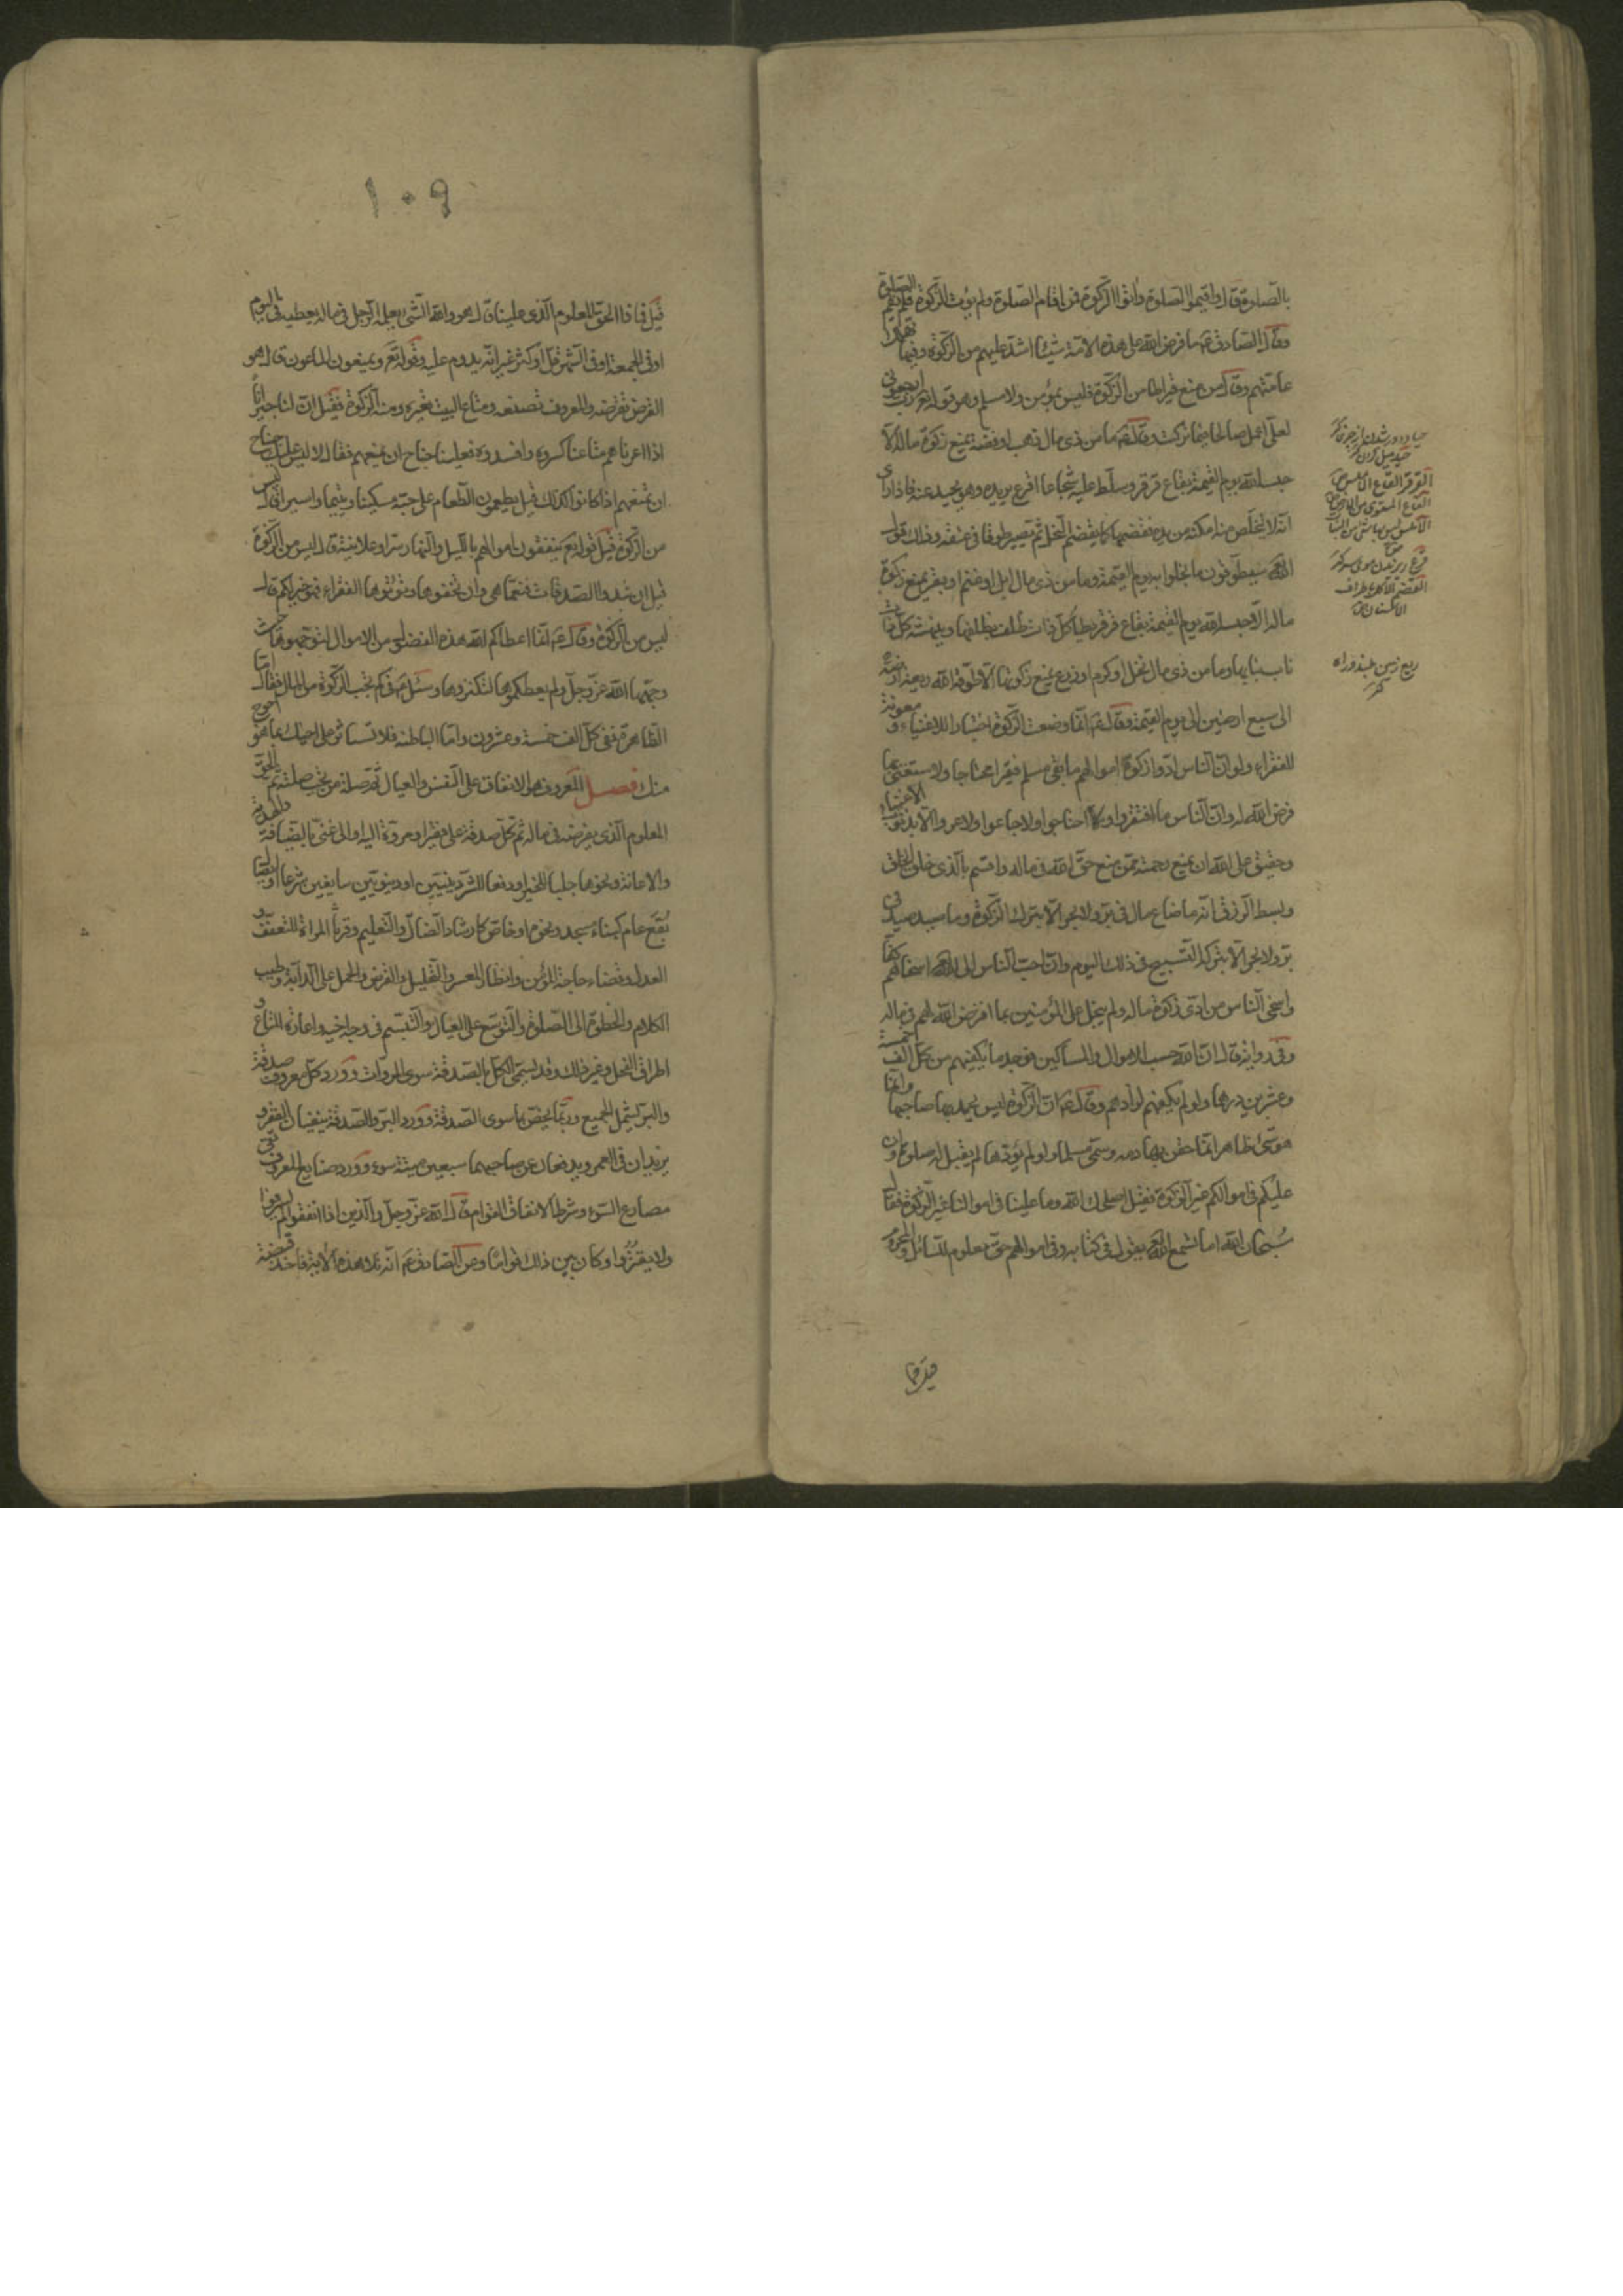 بالصلوة قال واقيموا الصلوة واتوا الزكوة فمن اقام الصلوة ولم يؤت الزكوة فلم يقم الصلوة
وقال الصادق ع ما فرض الله على هذه الامة شيئا اشد عليهم من الزكوة وفيها تهلك
عامتهم وقال من منع قيراطا من الزكوة فليس بمؤمن ولا مسلم وهو قوله تعالى رب ارجعونى
لعلى اعمل صالحا فيما تركت وقال ع ما من ذى مال ذهب او فضة يمنع زكوة ماله الا
حبسه الله يوم القيمة بقاع قرقر وسلط عليه شجاعا اقرع يريده وهو يحيد عنه فاذا راى
انه لا يتخلص منه امكنه من يده فقضمها كما يقضم الفجل ثم تصير طوقا فى عنقه وذلك قول
الله سيطوقون ما بخلوا به يوم القيمة وما من ذى مال ابل او غنم او بقر يمنع زكوة
ماله الا حبسه الله يوم القيمة بقاع قرقر يطاه كل ذات ظلف بظلفها وينهشه كل ذات
ناب بنابها وما من ذى مال نخل او كرم او زرع يمنع زكوتها الا طوقه الله ريعة ارضه
الى سبع ارضين الى يوم القيمة وقال ع انما وضعت الزكوة اختبارا للاغنياء و معونة
للفقراء ولو ان الناس ادوا زكوة اموالهم ما بقى مسلم فقيرا محتاجا ولاستغنى بما
فرض الله له وان الناس ما افتقروا ولا احتاجوا ولا جاعوا ولا عروا الا بذنوب الاغنياء
وحقيق على الله ان يمنع رحمته ممن منع حق الله فى ماله واقسم بالذى خلق الخلق
وبسط الرزق انه ما ضاع مال فى بر ولا بحر الا بترك الزكوة وما صيد صيد فى
بر ولا بحر الا بتركه التسبيح فى ذلك اليوم وان احب الناس الى الله اسخاهم كفا
واسخى الناس من ادى زكوة ماله ولم يبخل على المؤمنين بما افترض الله لهم فى ماله
وفى رواية قال ان الله حسب الاموال والمساكين فوجد ما يكفيهم من كل الف خمسة
وعشرين درهما ولو لم يكفهم لزادهم وقال ع ان الزكوة ليس يحمد بها صاحبها وانما
هو شئ ظاهر انما حقن بها دمه وسمى مسلما ولو لم يؤدها لم يقبل له صلوة وان
عليكم فى اموالكم غير الزكوة فقيل اصلحك الله وما علينا فى اموالنا غير الزكوة فقال
سبحان الله اما تسمع الله يقول فى كتابه وفى اموالهم حق معلوم للسائل والمحروم
القرقر القاع الاملس
القاع المستوى من الارض
قيل فما
١٠٩
قيل فماذا الحق المعلوم الذى علينا قال هو والله الشئ يعلمه الرجل فى ماله يعطيه فى اليوم
او فى الجمعة او فى الشهر قل او كثر غير انه يدوم عليه وقوله تع ويمنعون الماعون قال هو
القرض تقرضه والمعروف تصنعه ومتاع البيت تعيره ومنه الزكوة فقيل ان لنا جيرانا
اذا اعرناهم متاعنا كسروه وافسدوه فعلينا جناح ان نمنعهم فقال لا ليس عليك جناح
ان تمنعهم اذا كانوا كذلك قيل يطعمون الطعام على حبه مسكينا ويتيما واسيرا قال ليس
من الزكوة قيل قوله تع ينفقون اموالهم بالليل والنهار سرا وعلانية قال ليس من الزكوة
قيل ان تبدوا الصدقات فنعما هى وان تخفوها وتؤتوها الفقراء فهو خير لكم قال
ليس من الزكوة وقال ع انما اعطاكم الله هذه الفضول من الاموال لتوجهوها حيث
وجهها الله عز وجل ولم يعطكموها لتكنزوها وسئل ع فى كم تجب الزكوة من المال فقال اما
الظاهرة ففى كل الف خمسة وعشرون واما الباطنة فلا تستاثر على اخيك بما هو احوج
منك فصل المعروف هو الانفاق على النفس والعيال ثم صلة من يجب صلته ثم الحق
المعلوم الذى يفرضه فى ماله ثم كل صدقة على فقير او مروة اليه او الى غنى بالضيافة والهدية
والاعانة ونحوها جلبا للخير او دفعا للشر دينيين او دنيويين سايغين شرعا او
بنفع عام كبناء مسجد ونحوه او خاص كارشاد الضال والتعليم وقربان المراة للتعفف و
العدل وقضاء حاجة المؤمن وانظار المعسر والتحليل والقرض والحمل على الدابة وطيب
الكلام والخطوة الى الصلوة والتوسع على العيال والتبسم فى وجه اخيه واعارة المتاع و
اطراق الفحل وغير ذلك وقد يسمى الكل بالصدقة سوى المروات وورد كل معروف صدقة
والبر يشمل الجميع وربما يخص بما سوى الصدقة وورد البر والصدقة ينفيان الفقر و
يزيدان فى العمر ويدفعان عن صاحبهما سبعين ميتة سوء وورد صنايع المعروف تقى
مصارع السوء وشرط الانفاق القوام قال الله عز وجل والذين اذا انفقوا لم يسرفوا
ولم يقتروا وكان بين ذلك قواما وعن الصادق ع انه تلا هذه الاية فاخذ قبضة